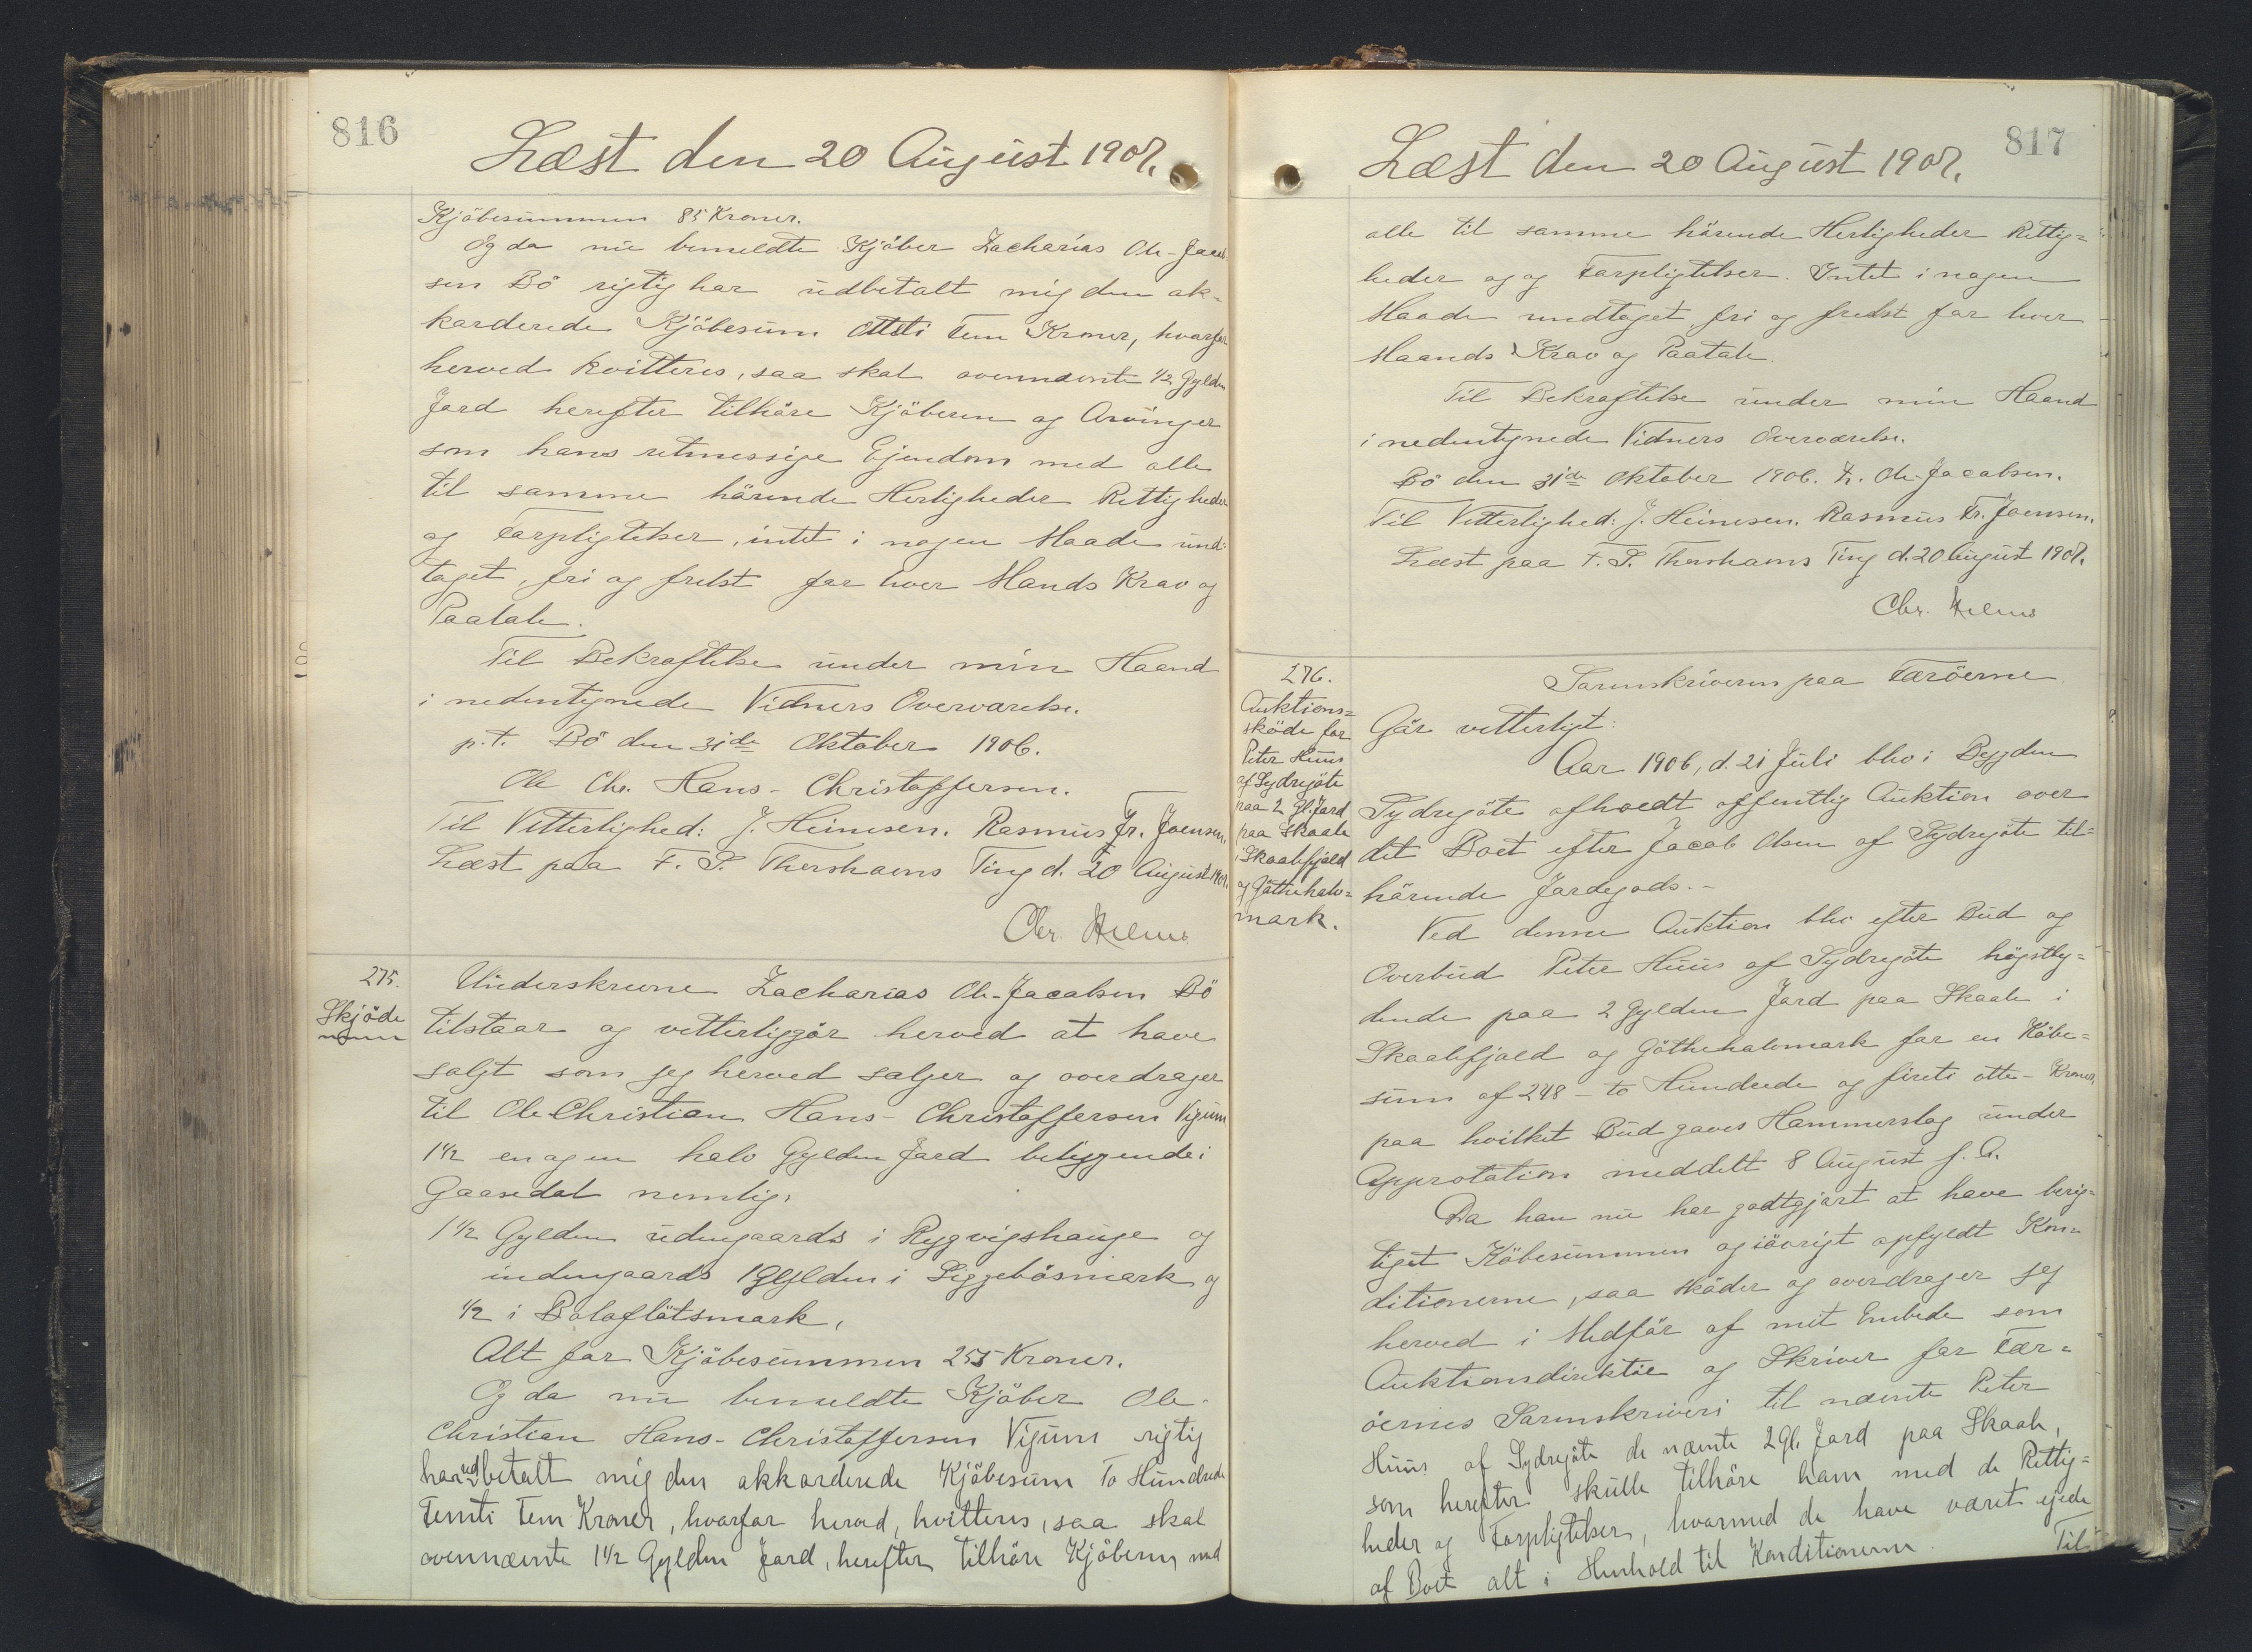 816
Læst den 20 August 1907.
Kjöbesummen 85 Kroner.
Og da nu bemeldte Kjöber Zacharias Ole-Jacob-
sen Bö rigtig har udbetalt mig den ak-
karderede Kjöbesum Ottsti Fem Kroner, hvarfor
herved kvitteres, saa skal ovennævnte 1/2 Gylden
Jard herefter tilhöre Kjöberen og Arvinger
som hans retmessige Ejendom med alle
til samme hörende Herligheder Rettigheder
og Farpligtelser, intet i nogen Maade und-
taget, fri og frelst for hver Mands Krav og
Paatale.
Til Bekræftelse under min Haand
i nedentegnede Vidners Overværelse.
p.t. Bö den 31de Oktober 1906.
Ole Chr. Hans-Christoffersen.
Til Vitterlighed: J. Heinesen. Rasmus Fr. Joensen.
Læst paa F. S. Thorshavns Ting d. 20 August 1907.
Chr. Helms
275.
Skjöde
Underskrevne Zacharias Ole-Jacobsen Bö
tilstaar og vitterliggör herved at have
salgt som jeg herved sælger og overdrager
til Ole Christian Hans-Christoffersen Vigum
1 1/2 en og en halv Gylden Jard beliggende i
Gaasedal nemlig:
1 1/2 Gylden udengaards i Rygvigshauge og
indengaards 1 Gylden i Siggebösmark og
1/2 i Bolaflötsmark,
Alt for Kjöbesummen 255 Kroner.
Og da nu bemeldte Kjöber Ole-
Christian Hans-Christoffersen Vigum rigtig
har udbetalt mig den akkarderede Kjöbesum To Hundrede
Femti Fem Kroner, hvorfor herved, kvitteres, saa skal
ovennævnte 1 1/2 Gylden Jard, herefter tilhöre Kjöberen, med
817
Læst den 20 August 1907.
alle til samme hörende Herligheder Rettig=
heder og og Farpligtelser. Intet i nogen
Maade undtaget fri og frelst for hver
Maands Krav og Paatale.
Til Bekræftelse under min Haand
i nedentegnede Vidners Overværelse.
Bö den 31de Oktober 1906. Z. Ole-Jacobsen.
Til Vitterlighed: J. Heinesen. Rasmus Fr. Joensen.
Læst paa F. S. Thorshavns Ting d. 20 August 1907.
Chr. Helms
276.
Auktions=
sköde for
Peter Huus
af Sydregöte
paa 2 Gl. Jard
paa Skaale
i Skaalefjæld
og Göthehalv=
mark.
Sorenskriveren paa Færöerne
Gör vitterligt:
Aar 1906, d. 21 Juli blev i Bygden
Sydregöte afholdt offentlig Auktion over
det Boet efter Jacob Olsen af Sydregöte til=
hörende Jordegods.-
Ved denne Auktion blev efter Bud og
Overbud Peter Huus af Sydregöte höjstby=
dende paa 2 Gylden Jard paa Skaale i
Skaalefjæld og Göthehalvmark for en Köbe=
sum af 248 - to Hundrede og fireti otte - Kroner,
paa hvilket Bud gaves Hammerslag under
Approbation meddelt 8 August f. A.
Da han nu har godtgjort at have berig=
tiget Köbesummen og iövrigt opfyldt Kon=
ditionerne, saa sköder og overdrager jeg
herved i Medför af mit Embede som
Auktionsdirektör og Skriver for Fær=
öernes Sorenskriveri til nævnte Peter
Huus af Sydregöte de nævnte 2 Gl. Jard paa Skaale,
som herefter skulle tilhöre ham med de Rettig=
heder og Forpligtelser, hvormed de have været ejede
af Boet alt i Henhold til Konditionerne.
Til